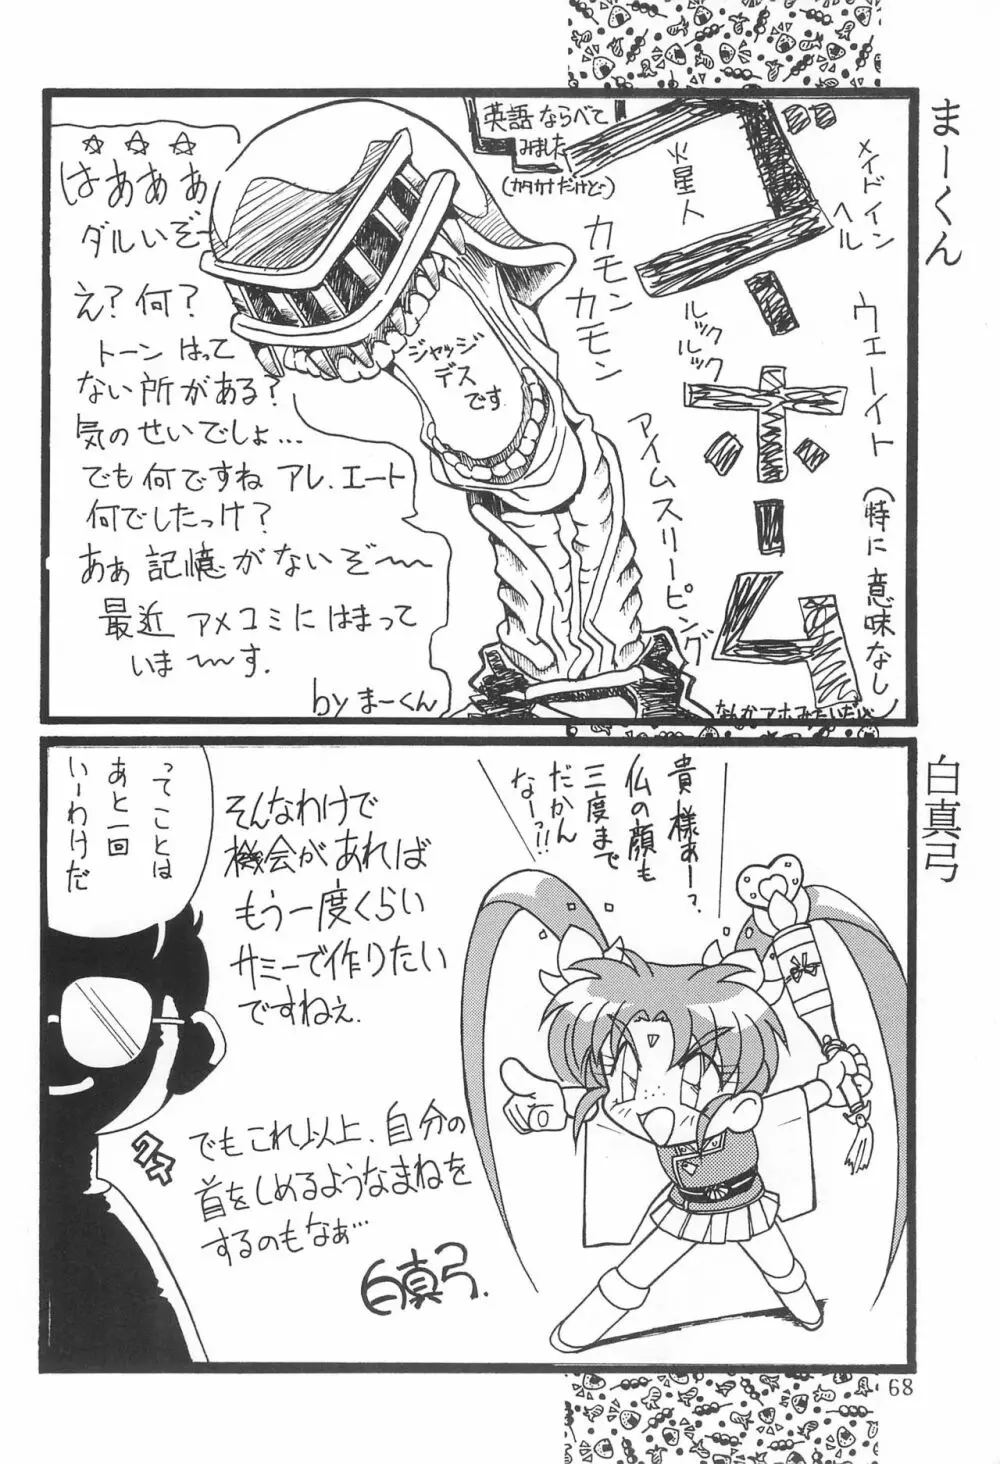 まーくん
英語ならべて
みました
(カタカナだけどー)
メイドイン
ヘル
火星人
カモン
カモン
ルック
ルック
ウェーイト
アイムスリーピング
(特に意味なし)
なんかアホみたいだい
ジャッジ
デス
です
☆☆☆
はあああ
ダルいぞ~
え?何?
トーンはって
ない所がある?
気のせいでしょ…
でも何ですね アレ、エート
何でしたっけ?
あぁ記憶がないぞ~~
最近 アメコミにはまって
いま~~す.
by まーくん
白真弓
貴様ぁーっ
仏の顔も
三度まで
だかん
なーっ!!
そんなわけで
機会があれば
もう一度くらい
サミーで作りたい
ですねぇ.
ってことは
あと一回
いーわけだ
クス
でもこれ以上、自分の
首をしめるようなまねを
するのもなぁ…
白真弓.
68